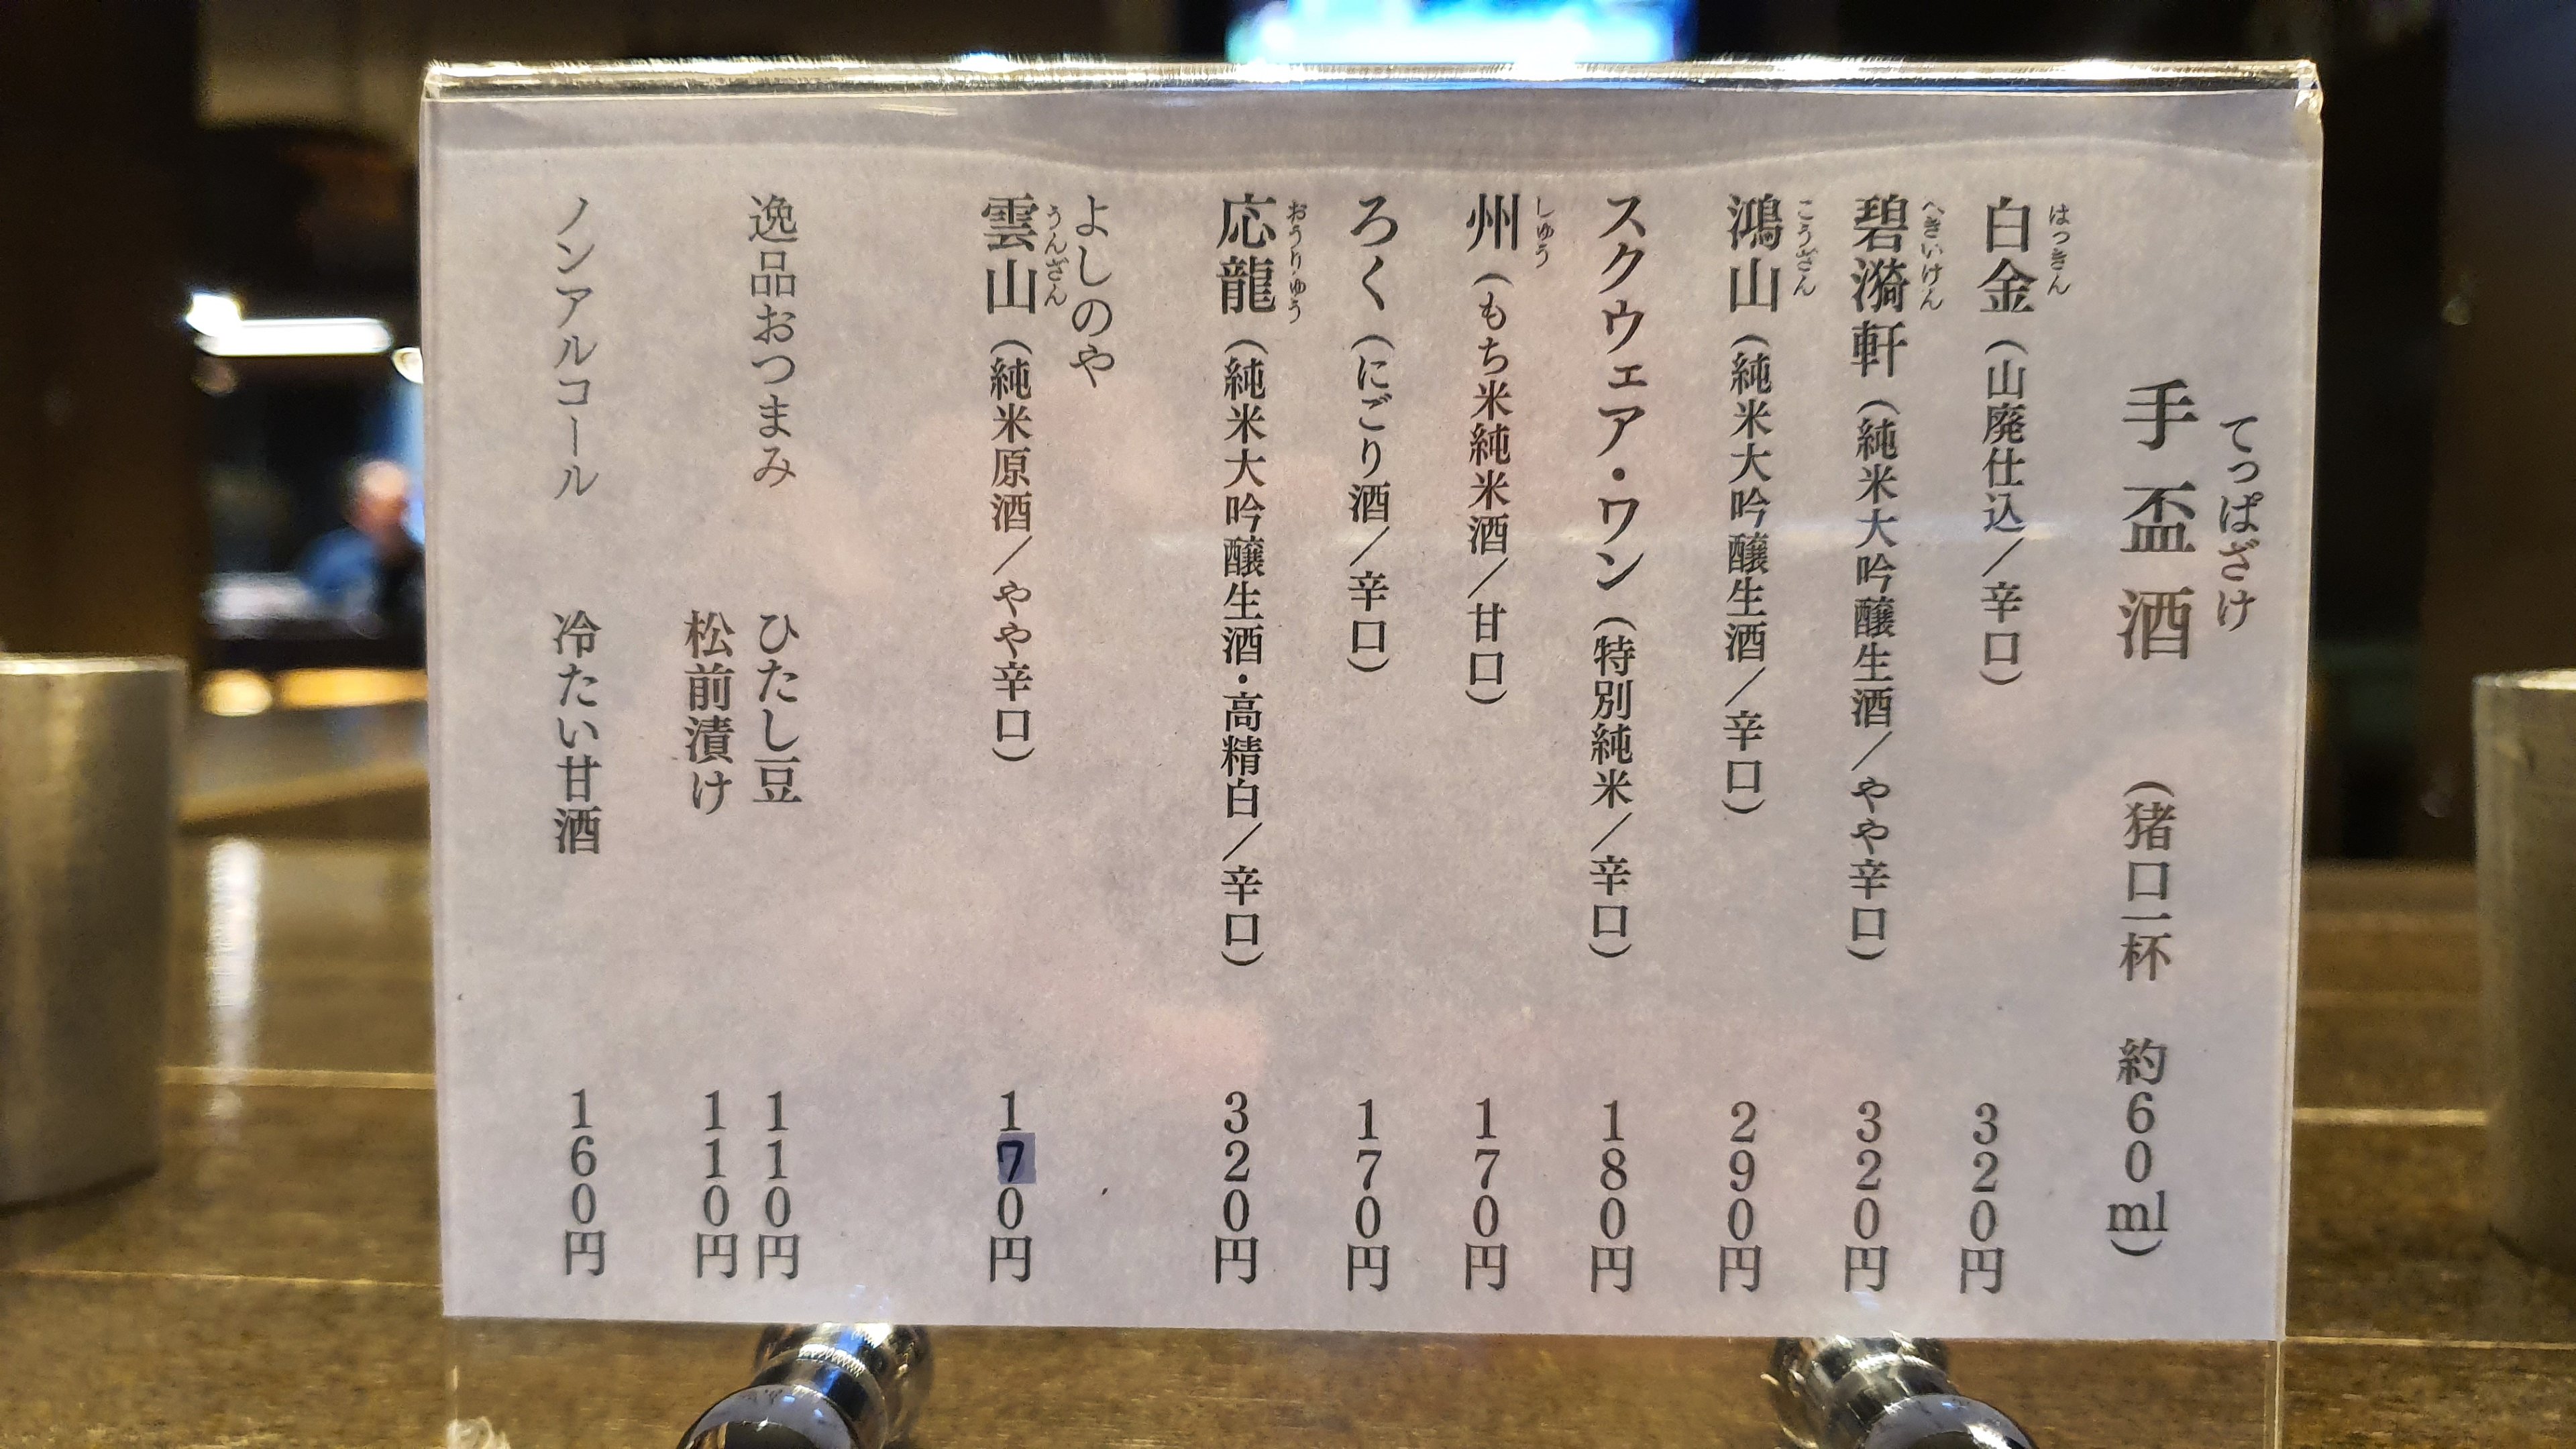 てっぱざけ
手盃酒　（猪口一杯　約60ml）
はっきん
白金（山廃仕込／辛口）　320円
へきいけん
碧漪軒（純米大吟醸生酒／やや辛口）　320円
こうざん
鴻山（純米大吟醸生酒／辛口）　290円
スクウェア・ワン（特別純米／辛口）　180円
しゅう
州（もち米純米酒／甘口）　170円
ろく（にごり酒／辛口）　170円
おうりゅう
応龍（純米大吟醸生酒・高精白／辛口）　320円
よしのや
うんざん
雲山（純米原酒／やや辛口）　170円
逸品おつまみ　ひたし豆　110円
松前漬け　110円
ノンアルコール　冷たい甘酒　160円